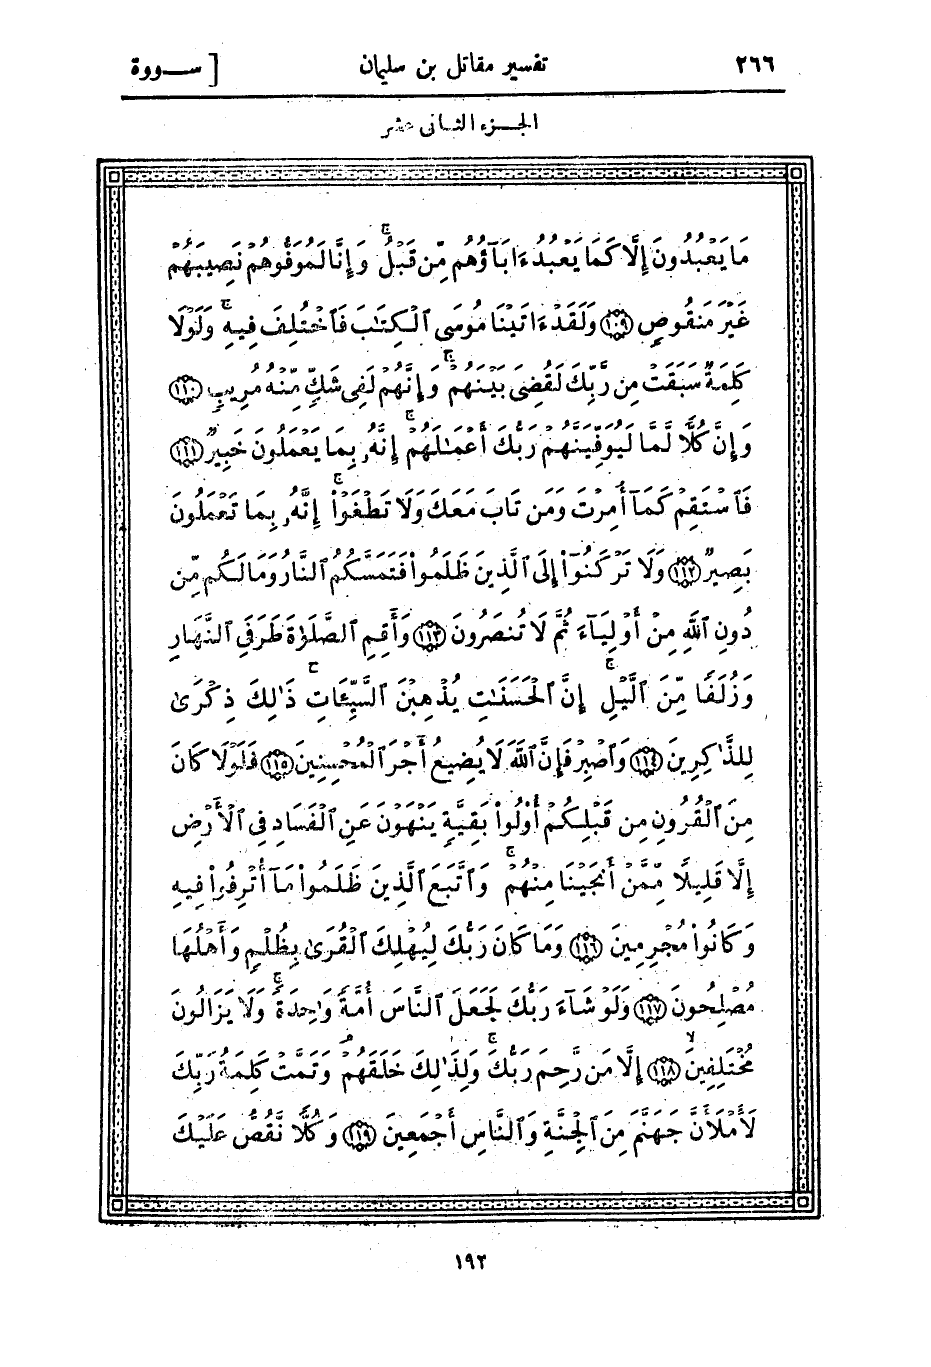 ٢٦٦ تفسير مقاتل بن سليمان [ ســورة
الجــزء الثانى عشر
مَا يَعْبُدُونَ إِلَّا كَمَا يَعْبُدُ ءَابَآؤُهُم مِّن قَبْلُ ۚ وَإِنَّا لَمُوَفُّوهُمْ نَصِيبَهُمْ
غَيْرَ مَنقُوصٍ ﴿١٠٩﴾ وَلَقَدْ ءَاتَيْنَا مُوسَى ٱلْكِتَٰبَ فَٱخْتُلِفَ فِيهِ ۚ وَلَوْلَا
كَلِمَةٌ سَبَقَتْ مِن رَّبِّكَ لَقُضِىَ بَيْنَهُمْ ۚ وَإِنَّهُمْ لَفِى شَكٍّ مِّنْهُ مُرِيبٍ ﴿١١٠﴾
وَإِنَّ كُلًّا لَّمَّا لَيُوَفِّيَنَّهُمْ رَبُّكَ أَعْمَٰلَهُمْ ۚ إِنَّهُۥ بِمَا يَعْمَلُونَ خَبِيرٌ ﴿١١١﴾
فَٱسْتَقِمْ كَمَآ أُمِرْتَ وَمَن تَابَ مَعَكَ وَلَا تَطْغَوْا۟ ۚ إِنَّهُۥ بِمَا تَعْمَلُونَ
بَصِيرٌ ﴿١١٢﴾ وَلَا تَرْكَنُوٓا۟ إِلَى ٱلَّذِينَ ظَلَمُوا۟ فَتَمَسَّكُمُ ٱلنَّارُ وَمَا لَكُم مِّن
دُونِ ٱللَّهِ مِنْ أَوْلِيَآءَ ثُمَّ لَا تُنصَرُونَ ﴿١١٣﴾ وَأَقِمِ ٱلصَّلَوٰةَ طَرَفَىِ ٱلنَّهَارِ
وَزُلَفًا مِّنَ ٱلَّيْلِ ۚ إِنَّ ٱلْحَسَنَٰتِ يُذْهِبْنَ ٱلسَّيِّـَٔاتِ ۚ ذَٰلِكَ ذِكْرَىٰ
لِلذَّٰكِرِينَ ﴿١١٤﴾ وَٱصْبِرْ فَإِنَّ ٱللَّهَ لَا يُضِيعُ أَجْرَ ٱلْمُحْسِنِينَ ﴿١١٥﴾ فَلَوْلَا كَانَ
مِنَ ٱلْقُرُونِ مِن قَبْلِكُمْ أُو۟لُوا۟ بَقِيَّةٍ يَنْهَوْنَ عَنِ ٱلْفَسَادِ فِى ٱلْأَرْضِ
إِلَّا قَلِيلًا مِّمَّنْ أَنجَيْنَا مِنْهُمْ ۚ وَٱتَّبَعَ ٱلَّذِينَ ظَلَمُوا۟ مَآ أُتْرِفُوا۟ فِيهِ
وَكَانُوا۟ مُجْرِمِينَ ﴿١١٦﴾ وَمَا كَانَ رَبُّكَ لِيُهْلِكَ ٱلْقُرَىٰ بِظُلْمٍ وَأَهْلُهَا
مُصْلِحُونَ ﴿١١٧﴾ وَلَوْ شَآءَ رَبُّكَ لَجَعَلَ ٱلنَّاسَ أُمَّةً وَٰحِدَةً ۖ وَلَا يَزَالُونَ
مُخْتَلِفِينَ ﴿١١٨﴾ إِلَّا مَن رَّحِمَ رَبُّكَ ۚ وَلِذَٰلِكَ خَلَقَهُمْ ۗ وَتَمَّتْ كَلِمَةُ رَبِّكَ
لَأَمْلَأَنَّ جَهَنَّمَ مِنَ ٱلْجِنَّةِ وَٱلنَّاسِ أَجْمَعِينَ ﴿١١٩﴾ وَكُلًّا نَّقُصُّ عَلَيْكَ
١٩٢